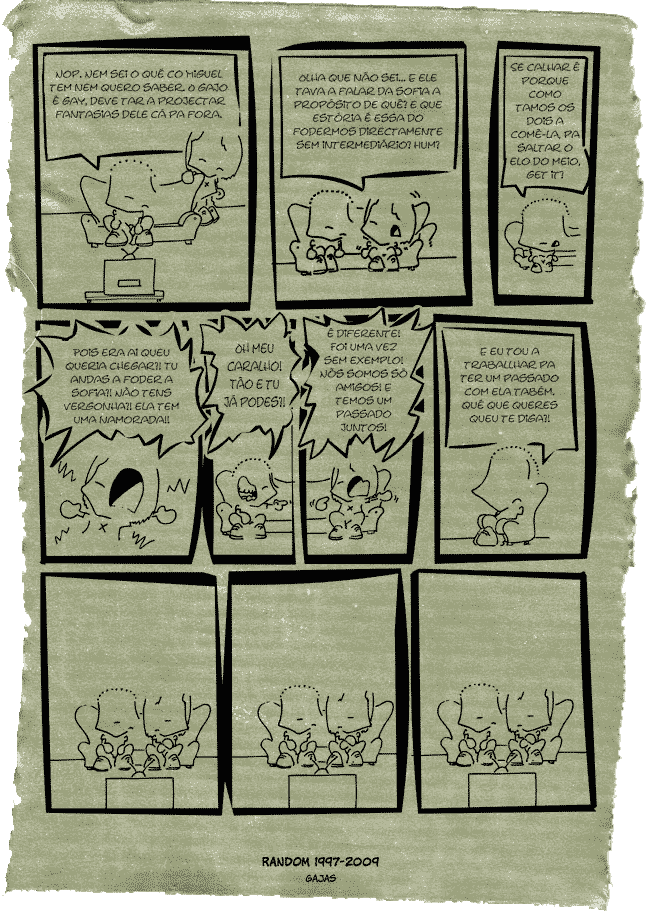 NOP. NEM SEI O QUÊ CO MIGUEL
TEM NEM QUERO SABER. O GAJO
É GAY, DEVE TAR A PROJECTAR
FANTASIAS DELE CÁ PA FORA.
OLHA QUE NÃO SEI... E ELE
TAVA A FALAR DA SOFIA A
PROPÓSITO DE QUÊ? E QUE
ESTÓRIA É ESSA DO
FODERMOS DIRECTAMENTE
SEM INTERMEDIÁRIO? HUM?
SE CALHAR É
PORQUE
COMO
TAMOS OS
DOIS A
COMÊ-LA, PA
SALTAR O
ELO DO MEIO,
GET IT?
POIS ERA AI QUEU
QUERIA CHEGAR?! TU
ANDAS A FODER A
SOFIA?! NÃO TENS
VERGONHA?! ELA TEM
UMA NAMORADA!!
OH MEU
CARALHO!
TÃO E TU
JÁ PODES?!
É DIFERENTE!
FOI UMA VEZ
SEM EXEMPLO!
NÓS SOMOS SÓ
AMIGOS! E
TEMOS UM
PASSADO
JUNTOS!
E EU TOU A
TRABALLHAR PA
TER UM PASSADO
COM ELA TABÉM.
QUÊ QUE QUERES
QUEU TE DIGA?!
RANDOM 1997-2009
GAJAS